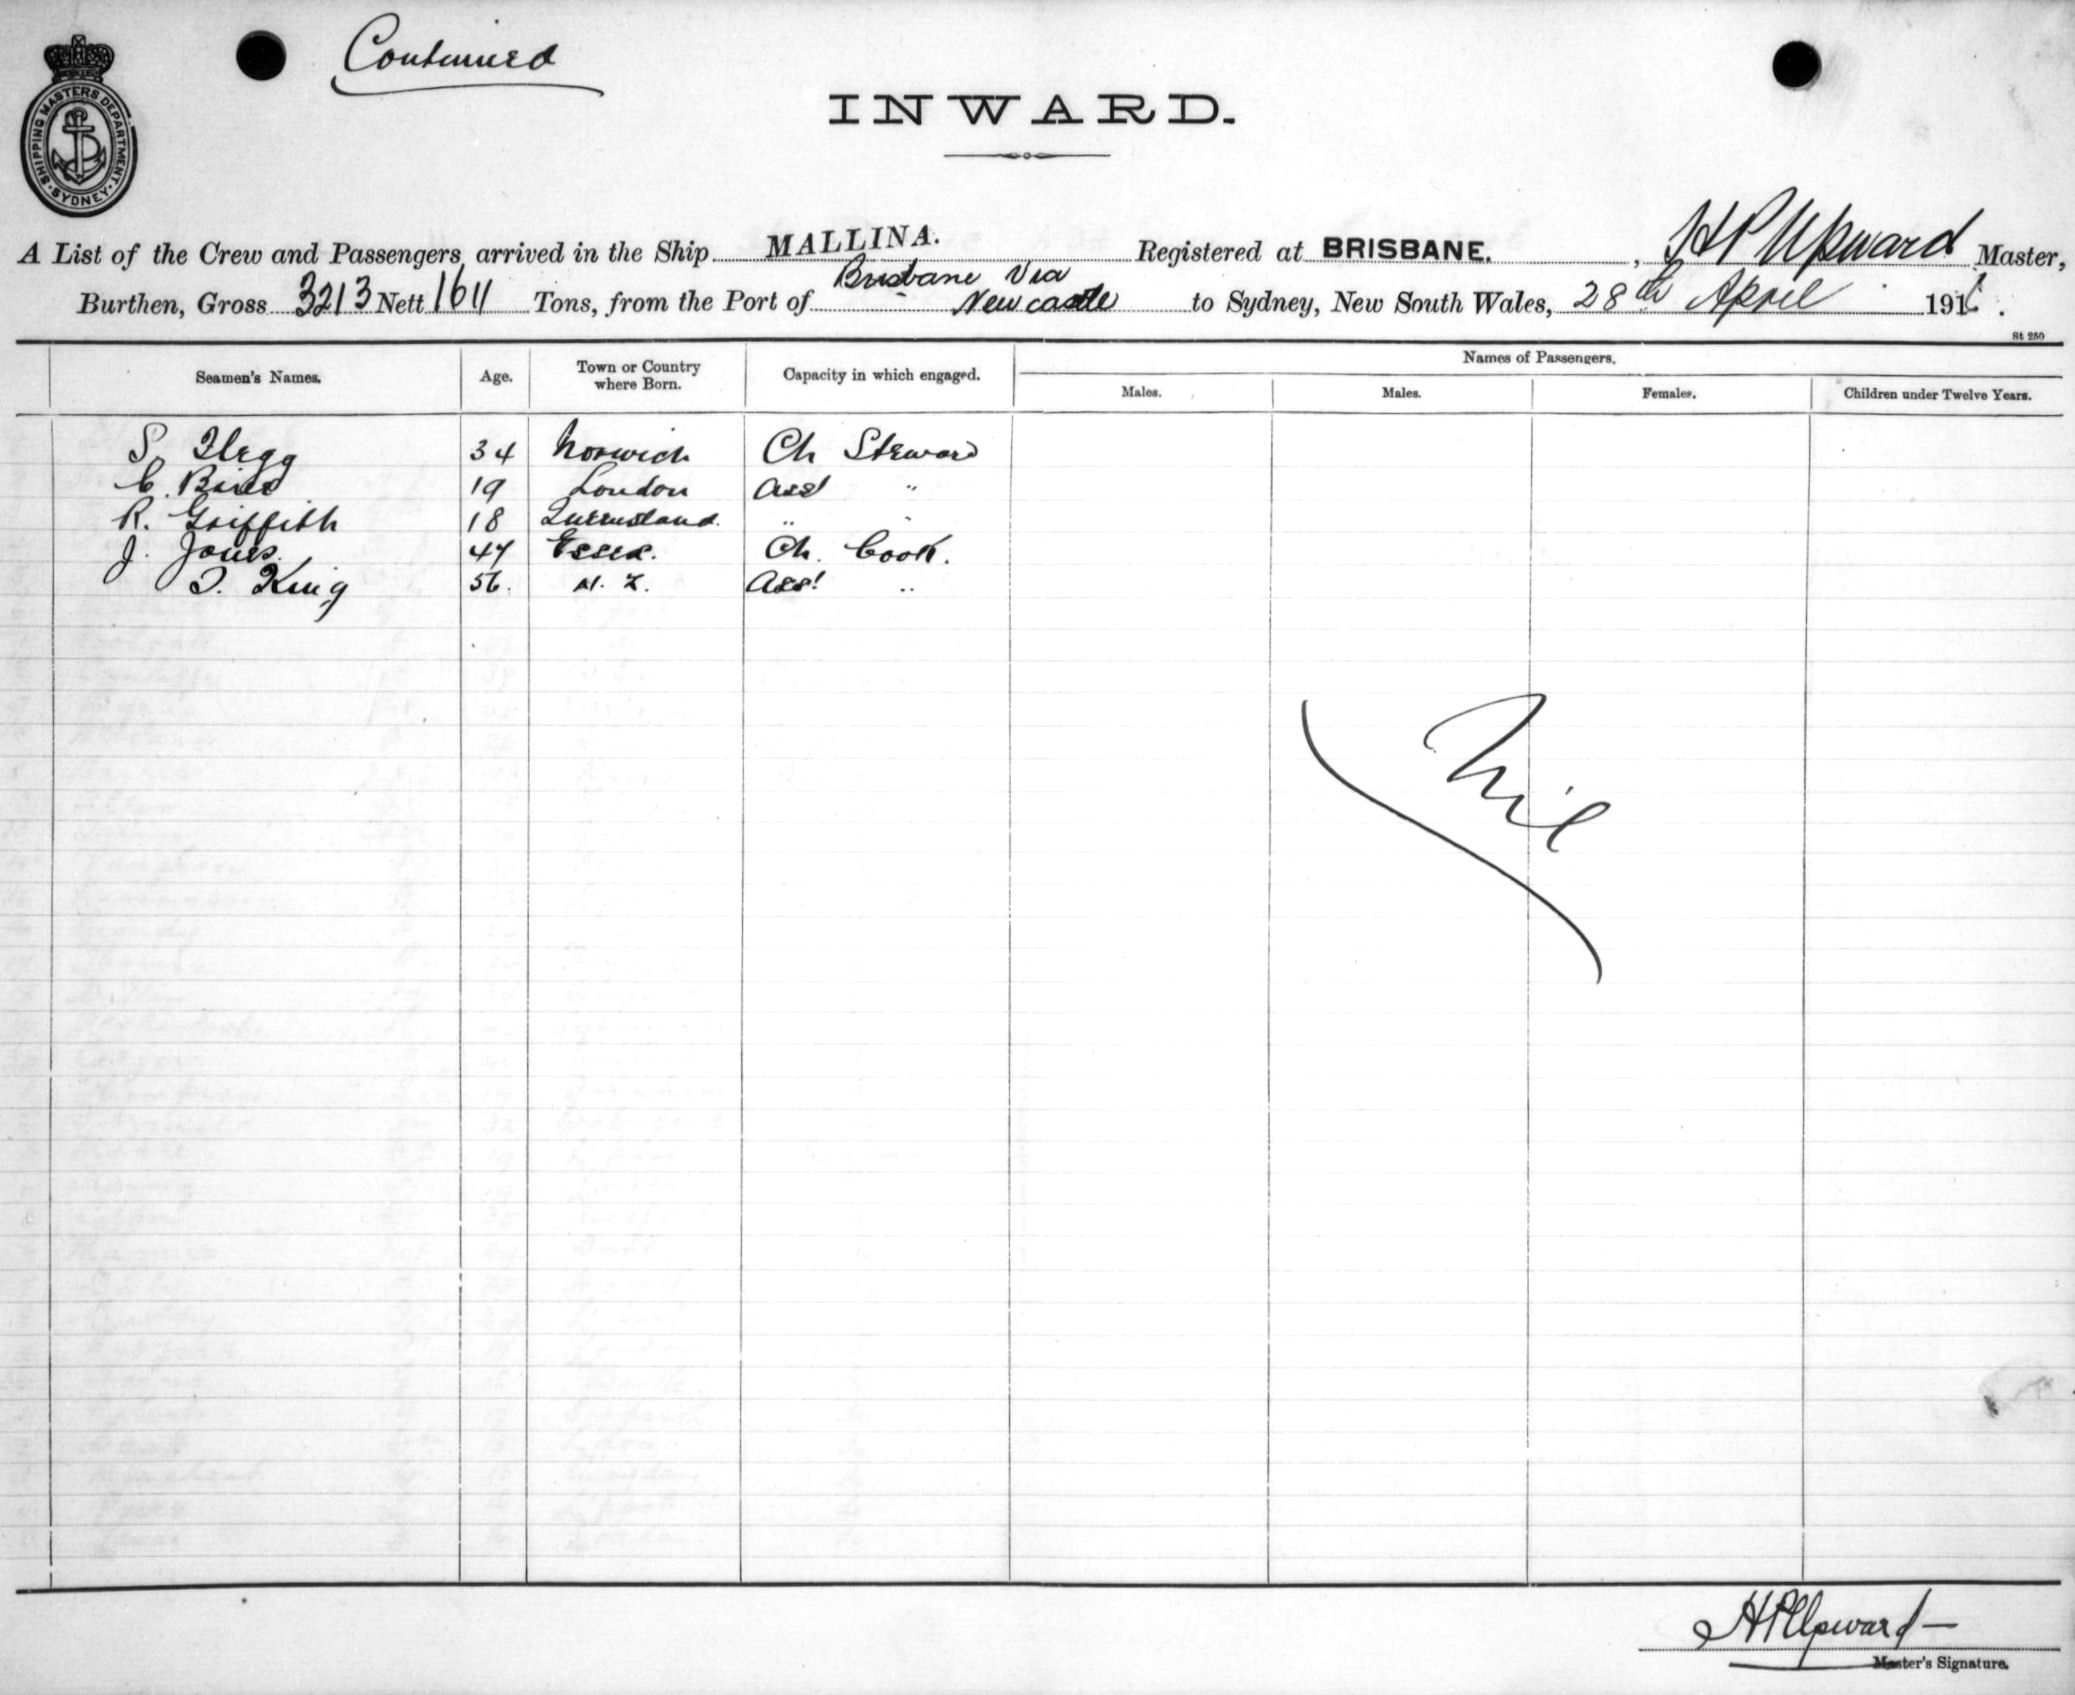 Continued
SHIPPING MASTERS DEPARTMENT.
SYDNEY
INWARD.
A List of the Crew and Passengers arrived in the Ship MALLINA. Registered at BRISBANE. , H P Upward Master,
Burthen, Gross 3213 Nett 1611 Tons, from the Port of Brisbane Via Newcastle to Sydney, New South Wales, 28th April 191 .
St 250
Seamen's Names. Age. Town or Country where Born. Capacity in which engaged. Names of Passengers.
Males. Males. Females. Children under Twelve Years.
S. Flegg 34 Norwich Ch Steward
C. Bird 19 London Asst "
R. Griffith 18 Queensland. " "
J. Jones. 47 Essex. Ch. Cook.
T. King 56. N. Z. Asst "
Nil
H P Upward
Master's Signature.